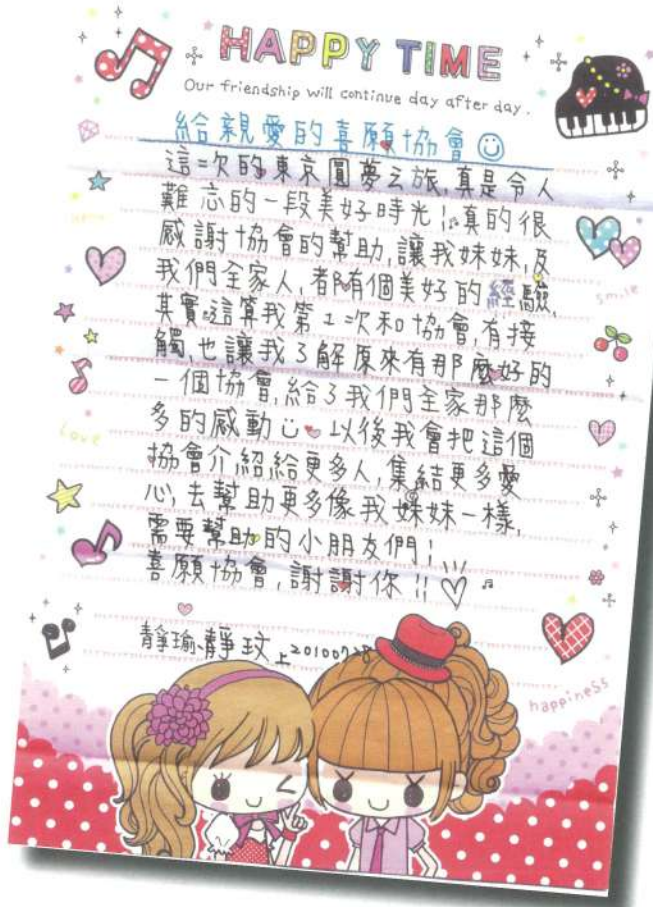 HAPPY TIME
Our friendship will continue day after day.
給親愛的喜願協會
這一次的東京圓夢之旅,真是令人
難忘的一段美好時光!真的很
感謝協會的幫助,讓我妹妹,及
我們全家人,都有個美好的經驗,
其實這算我第1次和協會,有接
觸,也讓我了解原來有那麼好的
一個協會,給了我們全家那麼
多的感動 以後我會把這個
協會介紹給更多人,集結更多愛
心,去幫助更多像我妹妹一樣,
需要幫助的小朋友們!
喜願協會,謝謝你!!
靜瑜、靜玟上20100728
smile
Love
happiness